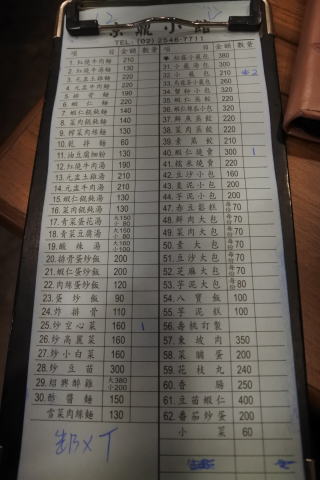 京鼎小館
TEL. (02) 2546-7711
項 目 金額 數量
1. 紅燒牛肉麵 210
2. 紅燒牛湯麵 130
3. 元盅土雞麵 220
4. 元盅牛肉麵 220
5. 排骨麵 190
6. 蝦仁麵 220
7. 蝦仁餛飩麵 140
8. 菜肉餛飩麵 140
9. 榨菜肉絲麵 130
10. 乾拌麵 60
11. 油豆腐細粉 130
12. 紅燒牛肉湯 190
13. 元盅土雞湯 210
14. 元盅牛肉湯 210
15. 蝦仁餛飩湯 130
16. 菜肉餛飩湯 130
17. 青菜蛋花湯 大150 小80
18. 青菜豆腐湯 大150 小80
19. 酸辣湯 大160 小100
20. 排骨蛋炒飯 200
21. 蝦仁蛋炒飯 200
22. 肉絲蛋炒飯 120
23. 蛋炒飯 90
24. 炸排骨 110
25. 炒空心菜 160 1
26. 炒高麗菜 160
27. 炒小白菜 160
28. 炒豆苗 300
29. 紹興醉雞 大380 小200
30. 酢醬麵 150
雪菜肉絲麵 130
項 目 金額 數量
松露小籠包 380
31. 小籠湯包 300
32. 小籠包 210 2
33. 烏龍茶小籠包 220
34. 蟹粉小包 320
35. 蝦仁蒸餃 220
36. 絲瓜蝦仁小包 320
37. 鮮魚蒸餃 220
38. 菜肉蒸餃 220
39. 素蒸餃 210
40. 蝦仁燒賣 300 1
41. 糯米燒賣 220
42. 豆沙小包 160
43. 棗泥小包 200
44. 芋泥小包 200
47. 赤豆鬆糕 每份70
48. 鮮肉大包 每份70
49. 菜肉大包 每份70
50. 素大包 每份70
51. 豆沙大包 每份70
52. 芝麻大包 每份70
53. 芋泥大包 每份80
54. 八寶飯 100
55. 芋泥糕 100
56. 壽桃訂製
57. 東坡肉 350
58. 菜脯蛋 200
59. 花枝丸 240
60. 香腸 250
61. 豆苗蝦仁 400
62. 番茄炒蛋 200
小菜 60